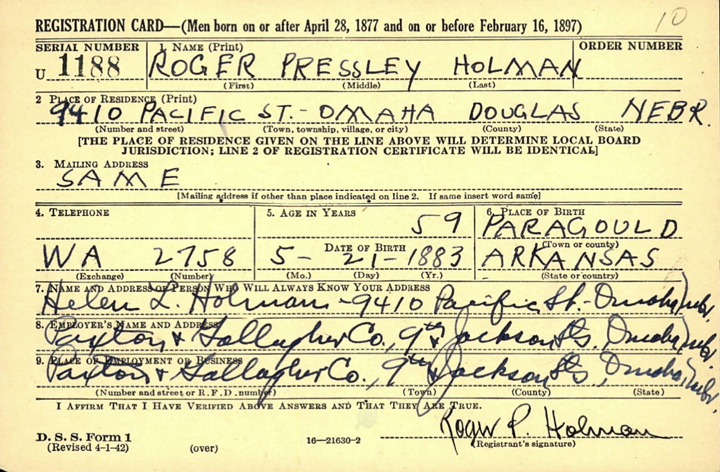 10
REGISTRATION CARD—(Men born on or after April 28, 1877 and on or before February 16, 1897)
SERIAL NUMBER 1. NAME (Print) ORDER NUMBER
U 1188 ROGER PRESSLEY HOLMAN
(First) (Middle) (Last)
2 PLACE OF RESIDENCE (Print)
9410 PACIFIC ST. - OMAHA DOUGLAS NEBR.
(Number and street) (Town, township, village, or city) (County) (State)
[THE PLACE OF RESIDENCE GIVEN ON THE LINE ABOVE WILL DETERMINE LOCAL BOARD
JURISDICTION; LINE 2 OF REGISTRATION CERTIFICATE WILL BE IDENTICAL]
3. MAILING ADDRESS
SAME
[Mailing address if other than place indicated on line 2. If same insert word same]
4. TELEPHONE 5. AGE IN YEARS 6. PLACE OF BIRTH
59 PARAGOULD
DATE OF BIRTH (Town or county)
WA 2758 5- 21-1883 ARKANSAS
(Exchange) (Number) (Mo.) (Day) (Yr.) (State or country)
7. NAME AND ADDRESS OF PERSON WHO WILL ALWAYS KNOW YOUR ADDRESS
Helen L. Holman - 9410 Pacific St. - Omaha, Nebr.
8. EMPLOYER'S NAME AND ADDRESS
Paxton & Gallagher Co., 9th & Jackson Sts, Omaha, Nebr.
9. PLACE OF EMPLOYMENT OR BUSINESS
Paxton & Gallagher Co., 9th & Jackson Sts, Omaha, Nebr.
(Number and street or R. F. D. number) (Town) (County) (State)
I AFFIRM THAT I HAVE VERIFIED ABOVE ANSWERS AND THAT THEY ARE TRUE.
Roger P. Holman
D. S. S. Form 1 16—21630-2 (Registrant's signature)
(Revised 4-1-42) (over)